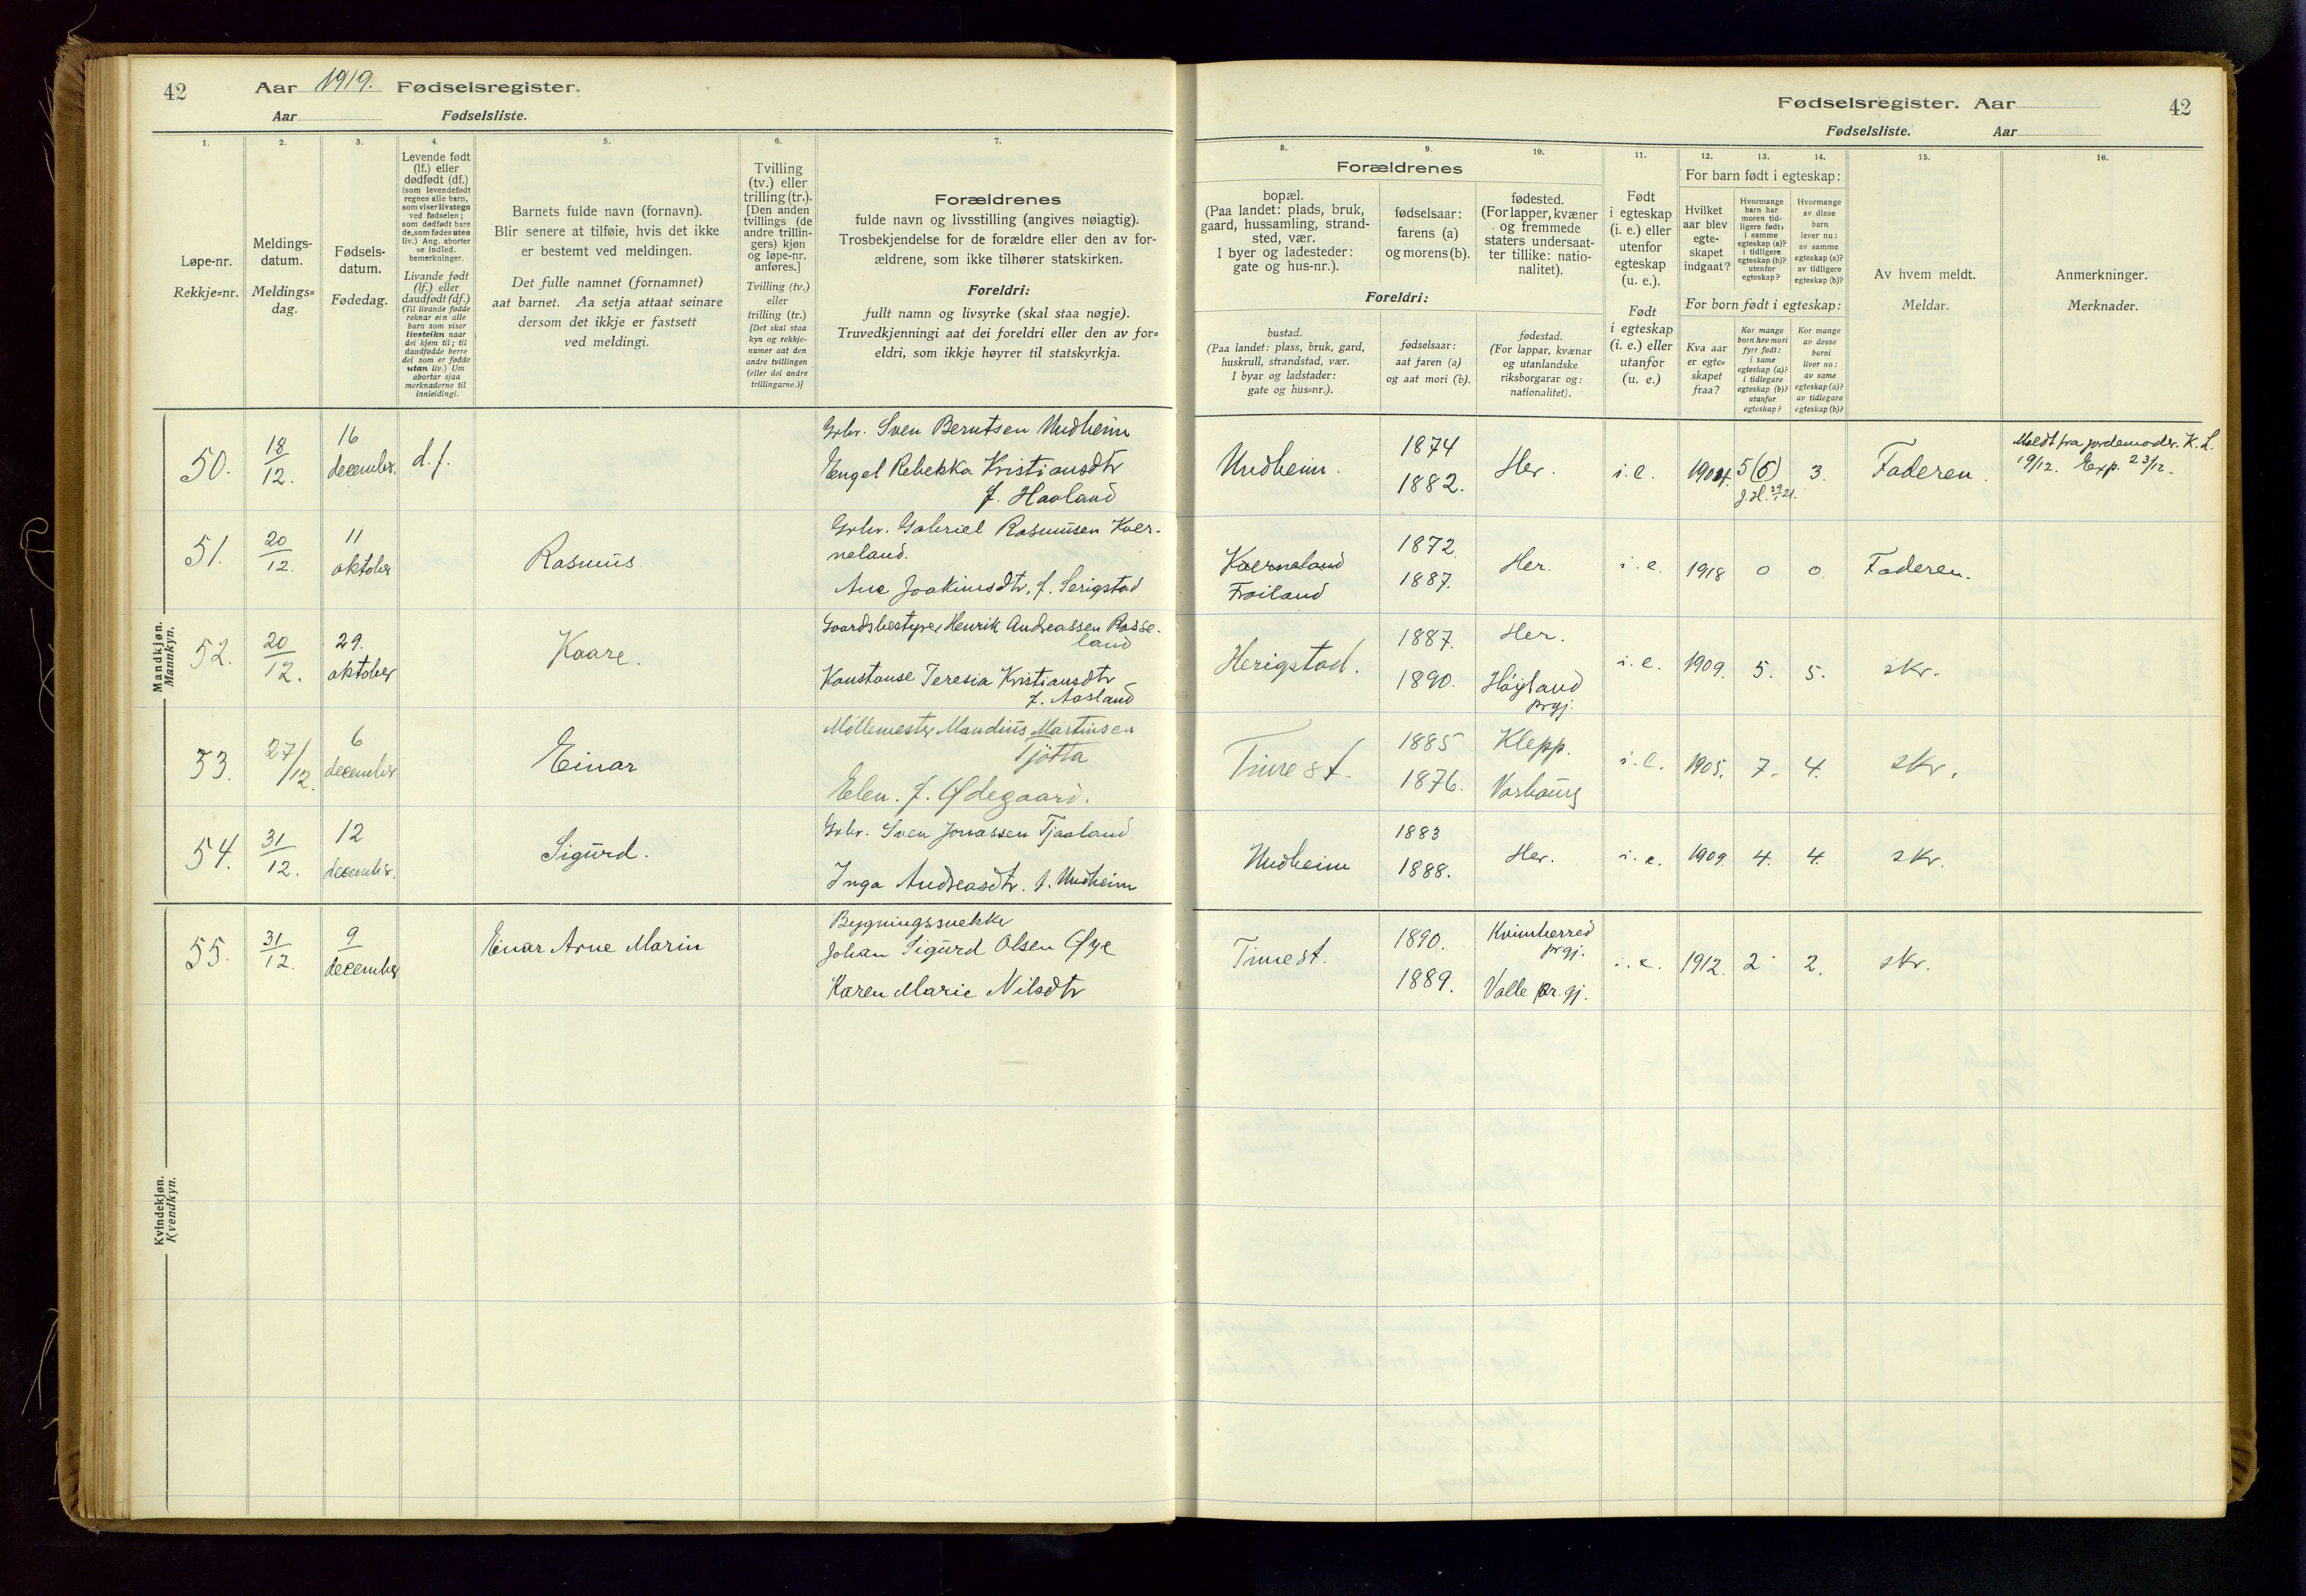 42 Aar 1919. Fødselsregister.
Aar Fødselsliste.
1. 2. 3. 4. 5. 6. 7.
Løpe-nr.
Rekkje=nr.
Meldings-
datum.
Meldings=
dag.
Fødsels-
datum.
Fødedag.
Levende født
(lf.) eller
dødfødt (df.)
(som levendefødt
regnes alle barn,
som viser livstegn
ved fødselen;
som dødfødt bare
de, som fødes uten
liv.) Ang. aborter
se indled.
bemerkninger.
Livande født
(lf.) eller
daudfødt (df.)
(Til livande fødde
reknar ein alle
barn som viser
livsteikn naar
dei kjem til; til
daudfødde berre
dei som er fødde
utan liv.) Um
abortar sjaa
merknaderne til
innleidingi.
Barnets fulde navn (fornavn).
Blir senere at tilføie, hvis det ikke
er bestemt ved meldingen.
Det fulle namnet (fornamnet)
aat barnet. Aa setja attaat seinare
dersom det ikkje er fastsett
ved meldingi.
Tvilling
(tv.) eller
trilling (tr.).
[Den anden
tvillings (de
andre trillin-
gers) kjøn
og løpe-nr.
anføres.]
Tvilling (tv.)
eller
trilling (tr.)
[Det skal staa
kyn og rekkje-
numer aat den
andre tvillingen
(eller dei andre
trillingarne.)]
Forældrenes
fulde navn og livsstilling (angives nøiagtig).
Trosbekjendelse for de forældre eller den av for-
ældrene, som ikke tilhører statskirken.
Foreldri:
fullt namn og livsyrke (skal staa nøgje).
Truvedkjenningi aat dei foreldri eller den av for=
eldri, som ikkje høyrer til statskyrkja.
Mandkjøn.
Mannkyn.
50. 18/12. 16 december. d.f.
Grbr. Sven Berntsen Undheim
Engel Rebekka Kristiansdtr
f. Haaland
51. 20/12. 11 oktober Rasmus.
Grbr. Gabriel Rasmusen Kver-
neland.
Ane Joakimsdtr, f. Serigstad
52. 20/12. 29. oktober Kaare.
Gaardsbestyrer Henrik Andreassen Rosse-
land
Konstanse Teresia Kristiansdtr
f. Aasland
53. 27/12. 6 december Einar
Møllemester Mandius Martinsen
Tjøtta
Elen. f. Ødegaard.
54. 31/12. 12 decembr. Sigurd.
Grbr. Sven Jonassen Tjaaland
Inga Andreasdtr. f. Undheim
Kvindekjøn.
Kvendkyn.
55. 31/12. 9 december Einar Arne Marin
Bygningssnekker
Johan Sigurd Olsen Øye
Karen Marie Nilsdtr
Fødselsregister. Aar 42
Fødselsliste. Aar
8. 9. 10. 11. 12. 13. 14. 15. 16.
Forældrenes
bopæl.
(Paa landet: plads, bruk,
gaard, hussamling, strand-
sted, vær.
I byer og ladesteder:
gate og hus-nr.).
fødselsaar:
farens (a)
og morens (b).
fødested.
(For lapper, kvæner
og fremmede
staters undersaat-
ter tillike: natio-
nalitet).
Foreldri:
bustad.
(Paa landet: plass, bruk, gard,
huskrull, strandstad, vær.
I byar og ladstader:
gate og hus=nr.).
fødselsaar:
aat faren (a)
og aat mori (b).
fødestad.
(For lappar, kvænar
og utanlandske
riksborgarar og:
nationalitet).
Født
i egteskap
(i. e.) eller
utenfor
egteskap
(u. e.).
Født
i egteskap
(i. e.) eller
utanfor
(u. e.)
For barn født i egteskap:
Hvilket
aar blev
egte-
skapet
indgaat?
Hvormange
barn har
moren tid-
ligere født:
i samme
egteskap (a)?
i tidligere
egteskap (b)?
utenfor
egteskap?
Hvormange
av disse
barn
lever nu:
av samme
egteskap (a)?
av tidligere
egteskap (b)?
For born født i egteskap:
Kva aar
er egte=
skapet
fraa?
Kor mange
born hev mori
fyrr født:
i same
egteskap (a)?
i tidlegare
egteskap (b)?
utanfor
egteskap?
Kor mange
av desse
borni
liver no:
av same
egteskap (a)?
av tidlegare
egteskap (b)?
Av hvem meldt.
Meldar.
Anmerkninger.
Merknader.
Undheim. 1874 1882. Her. i.e. 1904. 5 (6) J.H. 29/1 21. 3. Faderen. Meldt fra jordemoder. K.L.
19/12. Exp. 23/12.
Kverneland
Frøiland 1872. 1887. Her. i.e. 1918 0 0. Faderen.
Herigstad. 1887. 1890. Her. Høyland
prgj. i.e. 1909. 5. 5. skr.
Time st. 1885 1876. Klepp. Varhaug i.e. 1905. 7. 4. skr.
Undheim 1883 1888. Her. i.e. 1909. 4. 4. skr.
Time st. 1890. 1889. Kvinherred
prgj.
Valle pr.gj. i.e. 1912. 2 2. skr.